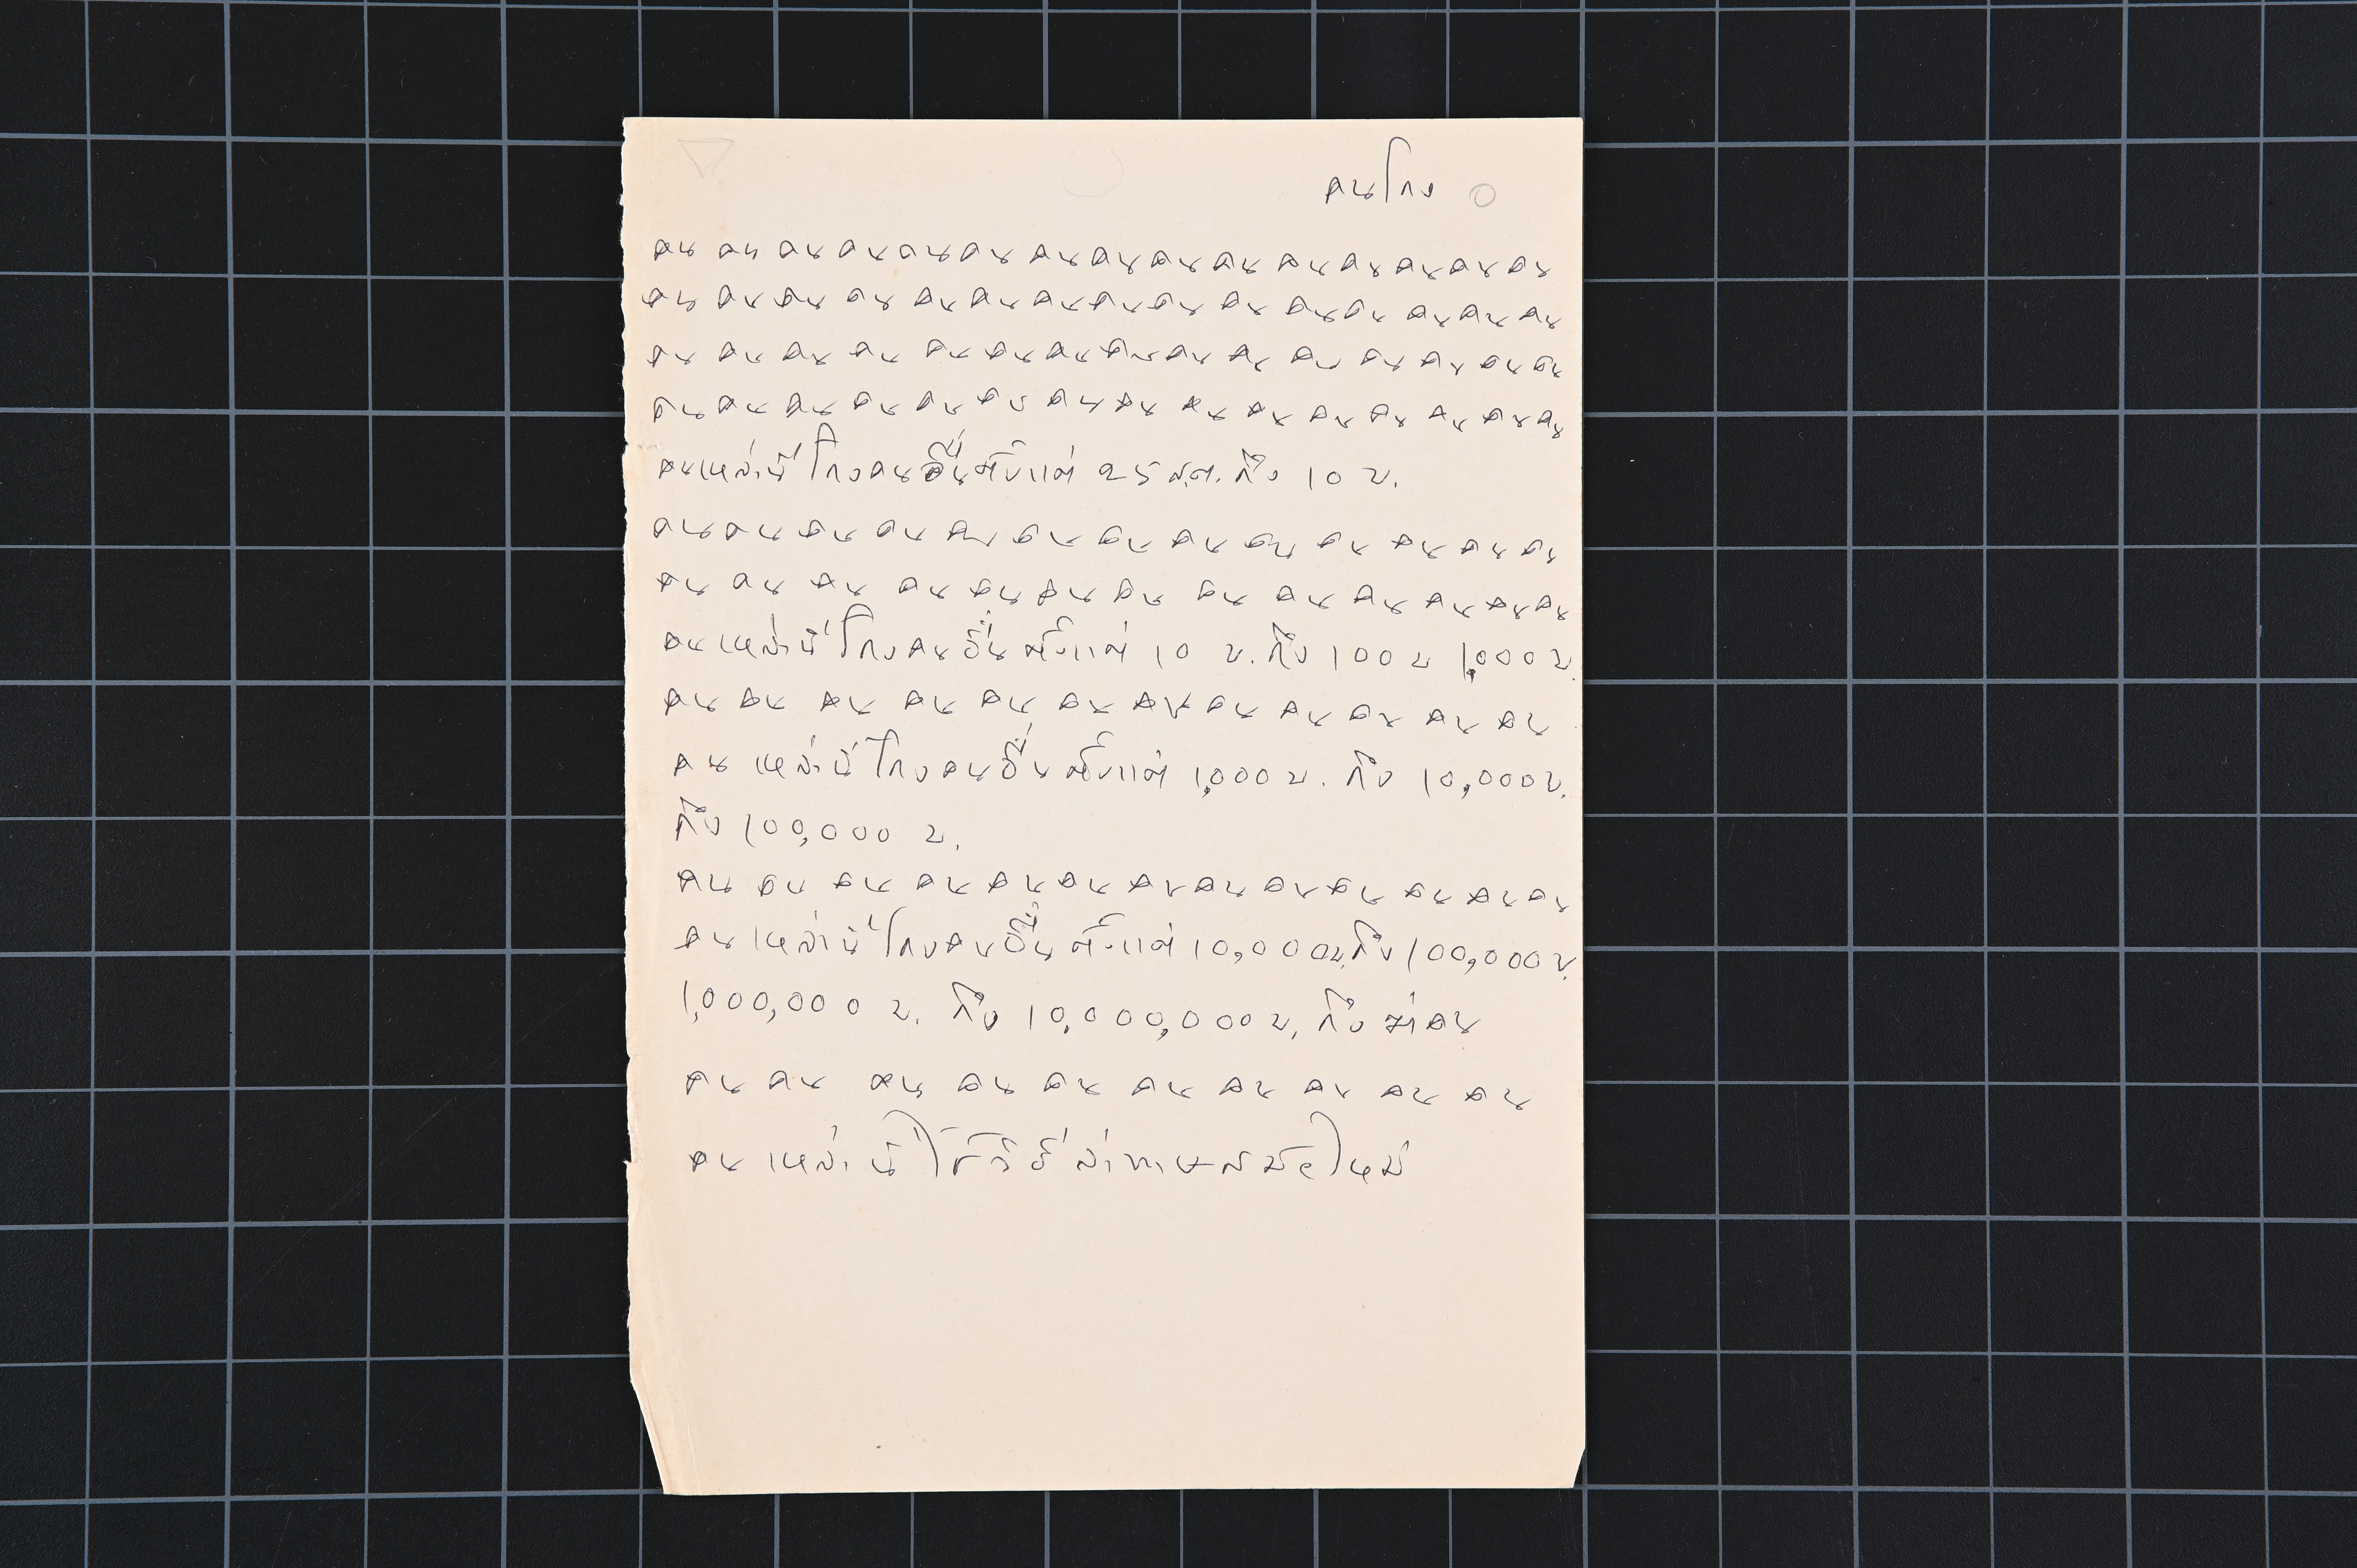 คนโกง
คน คน คน คน คน คน คน คน คน คน คน คน คน คน คน
คน คน คน คน คน คน คน คน คน คน คน คน คน คน คน
คน คน คน คน คน คน คน คน คน คน คน คน คน คน คน
คน คน คน คน คน คน คน คน คน คน คน คน คน คน คน
คนเหล่านี้โกงคนอื่นตั้งแต่ 25 ส.ต. ถึง 10 บ.
คน คน คน คน คน คน คน คน คน คน คน คน คน
คน คน คน คน คน คน คน คน คน คน คน คน คน
คนเหล่านี้โกงคนอื่นตั้งแต่ 10 บ. ถึง 100 บ 1,000 บ.
คน คน คน คน คน คน คน คน คน คน คน คน
คนเหล่านี้โกงคนอื่นตั้งแต่ 1,000 บ. ถึง 10,000 บ.
ถึง 100,000 บ.
คน คน คน คน คน คน คน คน คน คน คน คน คน
คนเหล่านี้โกงคนอื่นตั้งแต่ 10,000 บ. ถึง 100,000 บ.
1,000,000 บ. ถึง 10,000,000 บ. ถึงฆ่าคน
คน คน คน คน คน คน คน คน คน คน
คนเหล่านี้ใช้วิธีล่าทาษสมัยใหม่